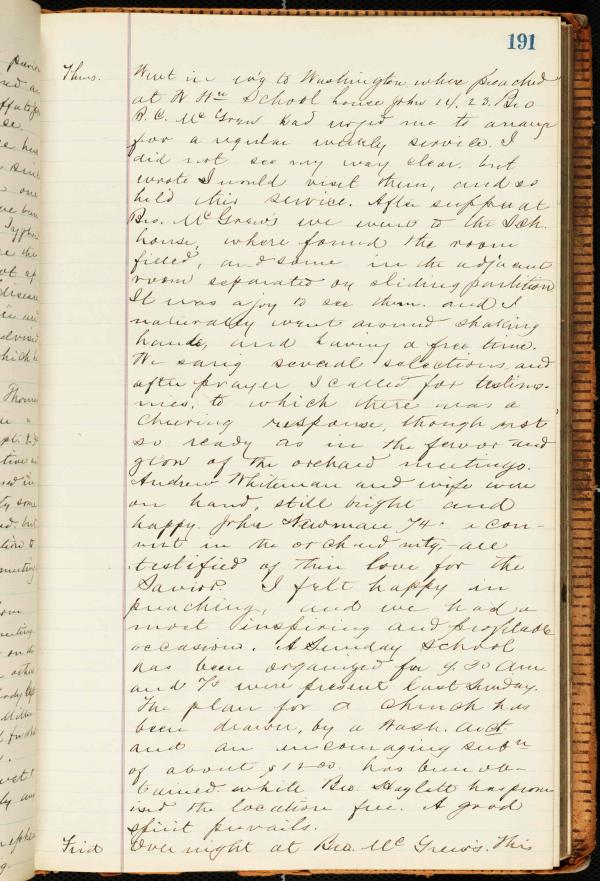 191
Thurs. Went in ev'g to Washington where preached
at School house John 14, 23. Bro
B. C. McGrew had urged me to arrange
for a regular weekly service. I
did not see my way clear. but
wrote I would visit them, and so
held this service. After supper at
Bro. McGrew's we went to the Sch.
house, where found the room
filled, and some in the adjacent
room separated by sliding partition
It was a joy to see them. and I
naturally went around shaking
hands, and having a free time.
We sang several selections, and
after prayer I called for testimo-
nies, to which there was a
cheering response, though not
so ready as in the fervor and
glow of the orchard meetings.
Andrew Whiteman and wife were
on hand, still bright and
happy. John Newman 74. a con-
vert in the orchard mtg,- all
testified of their love for the
Savior. I felt happy in
preaching, and we had a
most inspiring and profitable
occasion. A Sunday School
has been organized for 9.30 am
and 75 were present last Sunday.
The plan for a church has
been drawn, by a Wash. arct.
and an encouraging subn
of about $1200. has been ob-
tained. while Bro. Hazlett has prom
ised the location free. A good
spirit prevails.
Frid Over night at Bro. McGrew's. This